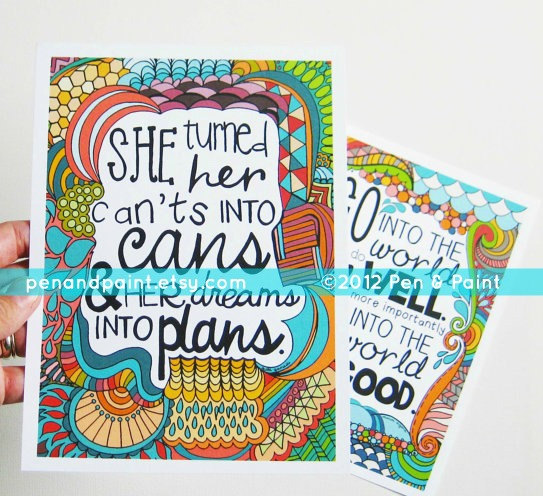 SHE turned
her
can'ts INTO
cans
& HER dreams
INTO plans.
GO INTO THE
world
do WELL.
more importantly
INTO THE
world
GOOD.
penandpaint.etsy.com ©2012 Pen & Paint